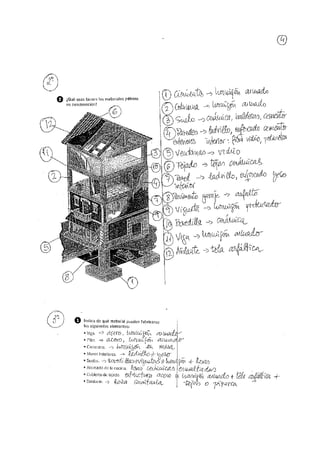 4
2º
¿Qué usos tienen los materiales pétreos
en construcción?
1 Cimiento → hormigón armado
2 Columna → hormigón armado
3 Suelo → cerámica, baldosas, cemento
4 Paredes → ladrillo, enfocado cemento
exteriores interior:
5 Ventanas → vidrio
6 Tejado → tejas cerámicas
7 Pared → ladrillo, enfocado yeso
interior
8 Pavimento garaje → asfalto
9 Vigueta → hormigón pretensado
10 Bovedilla → cerámica
11 Viga → hormigón armado
12 Aislante → tela asfáltica
3º
Indica de qué material pueden fabricarse
los siguientes elementos:
• Viga → acero, hormigón armado
• Pilar → acero, hormigón armado
• Cimientos → hormigón en masa
• Muros interiores → ladrillo + yeso
• Suelos → hormigón +
• Alicatado de la cocina cerámicas esmaltadas
• Cubierta de tejado estructura acero o hormigón armado + tela asfáltica +
tejas o pizarra
• loza sanitaria